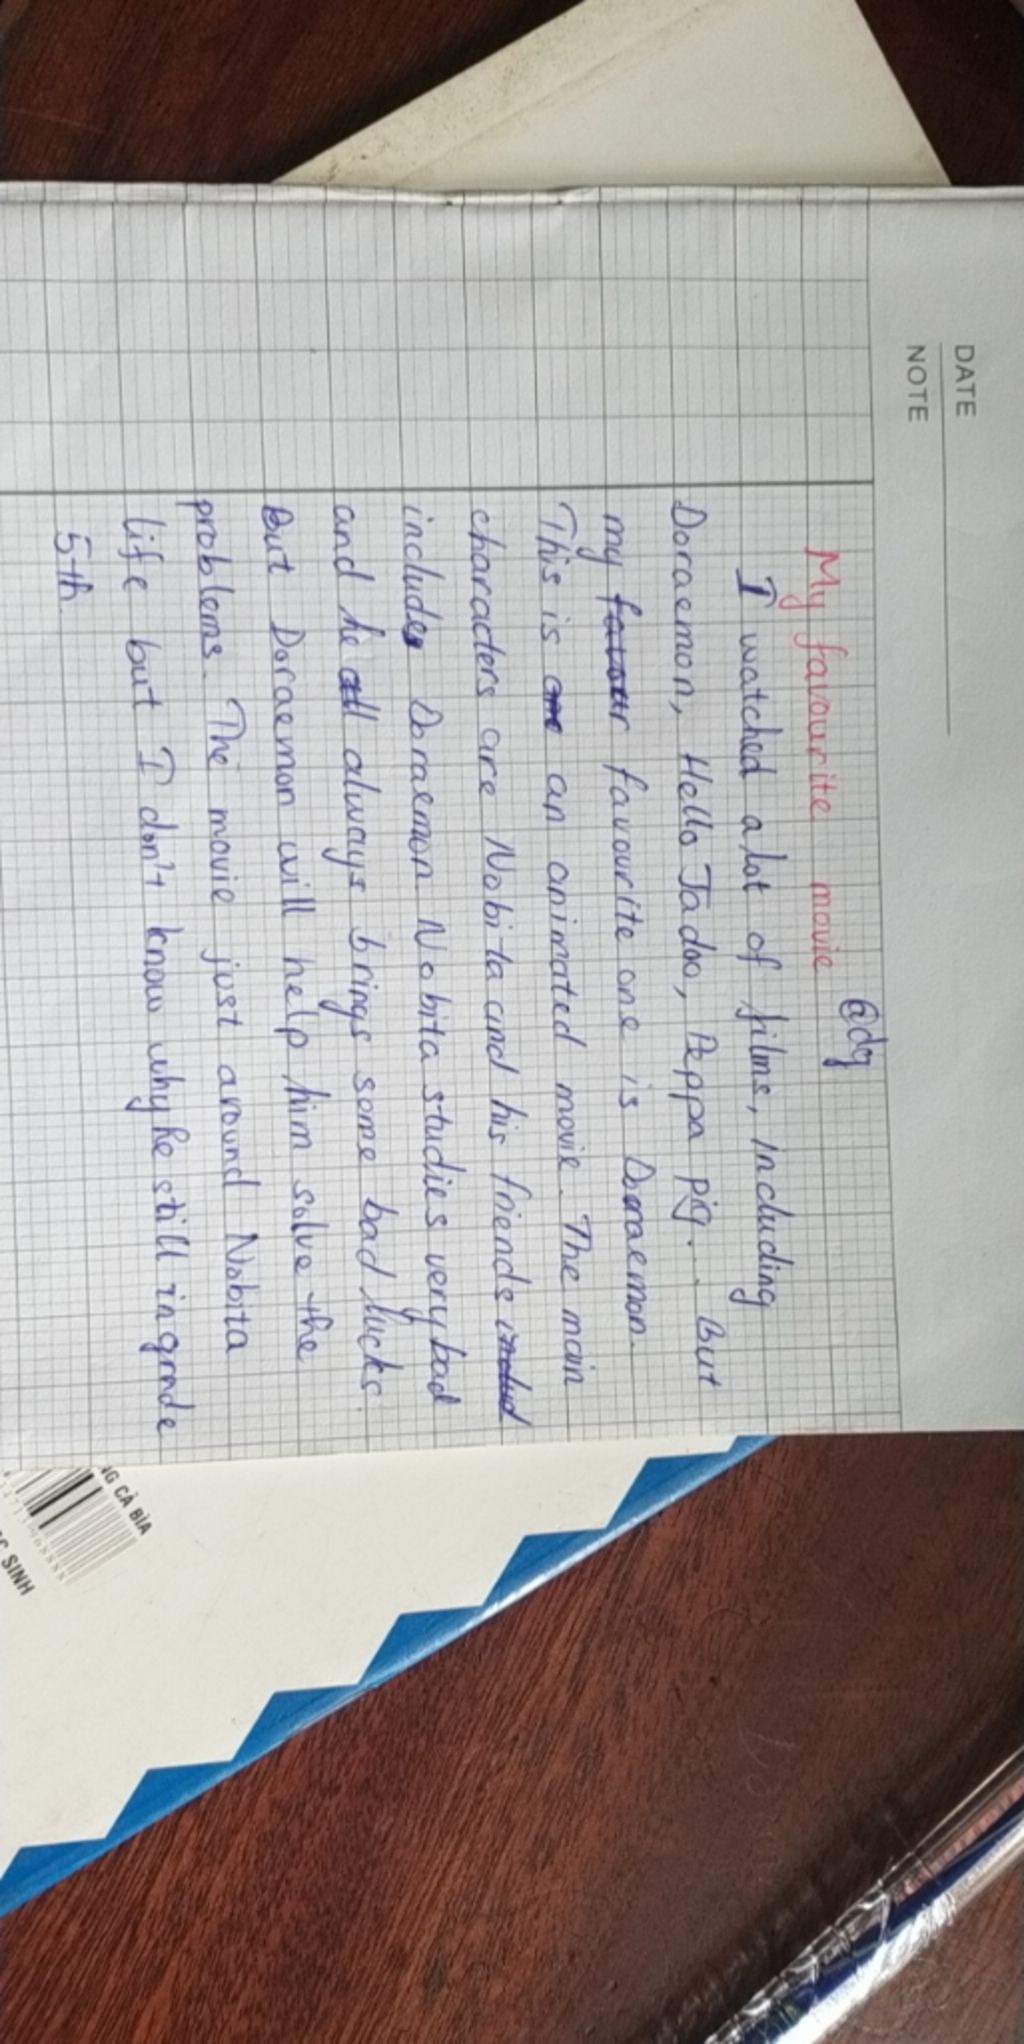 DATE
NOTE
@dg
My favourite movie
I watched a lot of films, Including
Doraemon, Hello Jadoo, Peppa pig... But
my favourite one is Doraemon.
This is an animated movie. The main
characters are Nobita and his friends
includes Doraemon Nobita studies very bad
and he always brings some bad lucks.
But Doraemon will help him solve the
problems. The movie just around Nobita
life but I don't know why he still in grade
5th
NG CẢ BÌA
C SINH